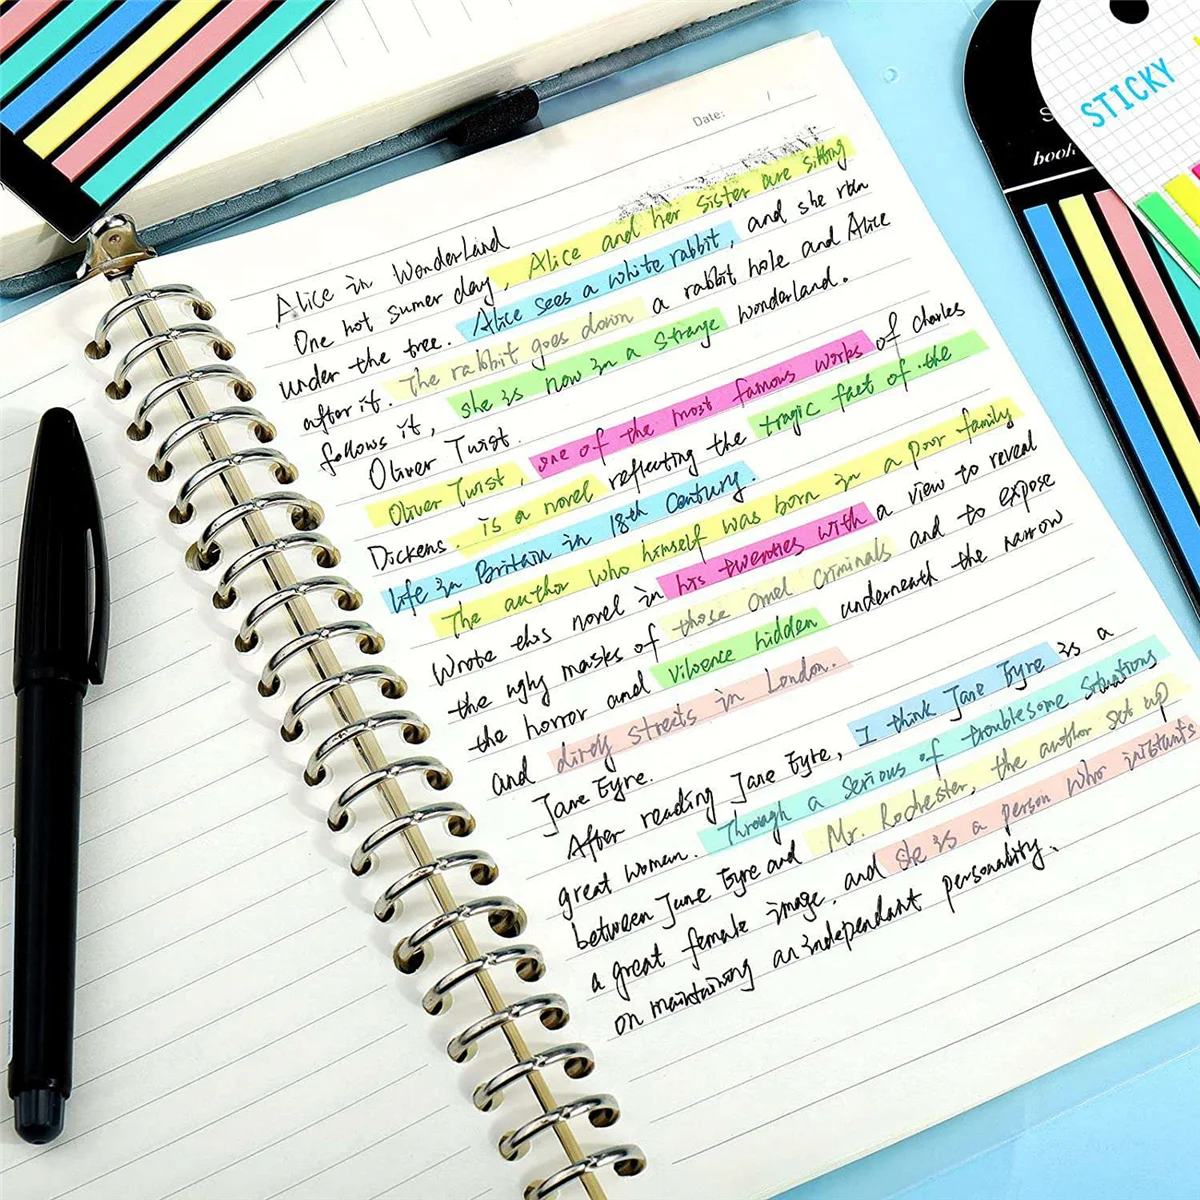 Date:
Alice in Wonderland
One hot sumer day, Alice and her sister are sitting
under the tree. Alice sees a white rabbit, and she ran
after it. The rabbit goes down a rabbit hole and Alice
follows it, she is now in a strange wonderland.
Oliver Twist.
Oliver Twist, one of the most famous works of charles
Dickens. is a novel reflecting the tragic fact of the
life in Britain in 18th Century.
The author who himself was born in a poor family
Wrote this novel in his twenties with a view to reveal
the ugly masks of those criminals and to expose
the horror and hidden underneath the narrow
and dirdy streets in London.
Jane Eyre.
After reading Jane Eyre, I think Jane Eyre is a
great woman. Through a serious of troublesome situations
between Jane Eyre and Mr. Rochester, the author set up
a great female image. and she is a person who
on maintaining an independant personality.
STICKY
book